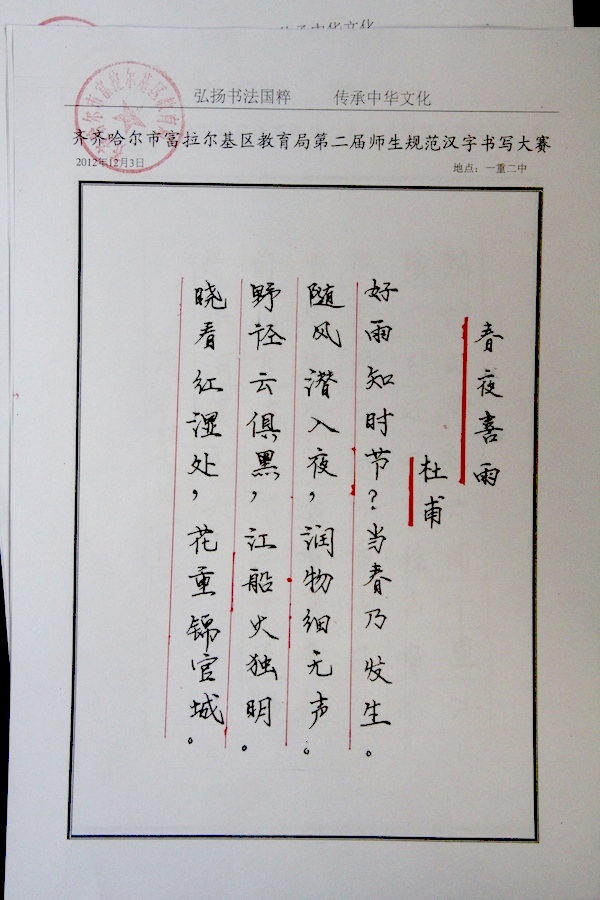 传承中华文化
弘扬书法国粹 传承中华文化
市富拉尔基区教育
齐齐哈尔市富拉尔基区教育局第二届师生规范汉字书写大赛
2012年12月3日
地点：一重二中
春夜喜雨
杜甫
好雨知时节？当春乃发生。
随风潜入夜，润物细无声。
野径云俱黑，江船火独明。
晓看红湿处，花重锦官城。